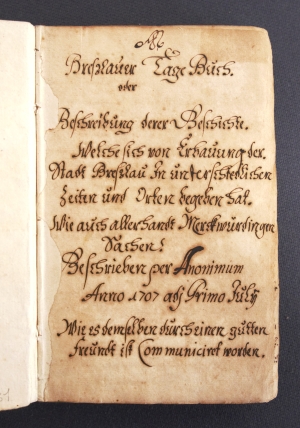 Breßlauer Tage Buch.
oder
Beschreibung derer Geschichte.
Welche sich von Erbauung der
Stadt Breßlau in unterschiedlichen
Zeiten und Orten begeben hat.
Wie auch allerhandt Merckwürdingen
Sachen.
Beschrieben per Anonimum
Anno 1707 adj Primo July
Wie es demselben durch einen gutten
Freundt ist Com municiret worden.